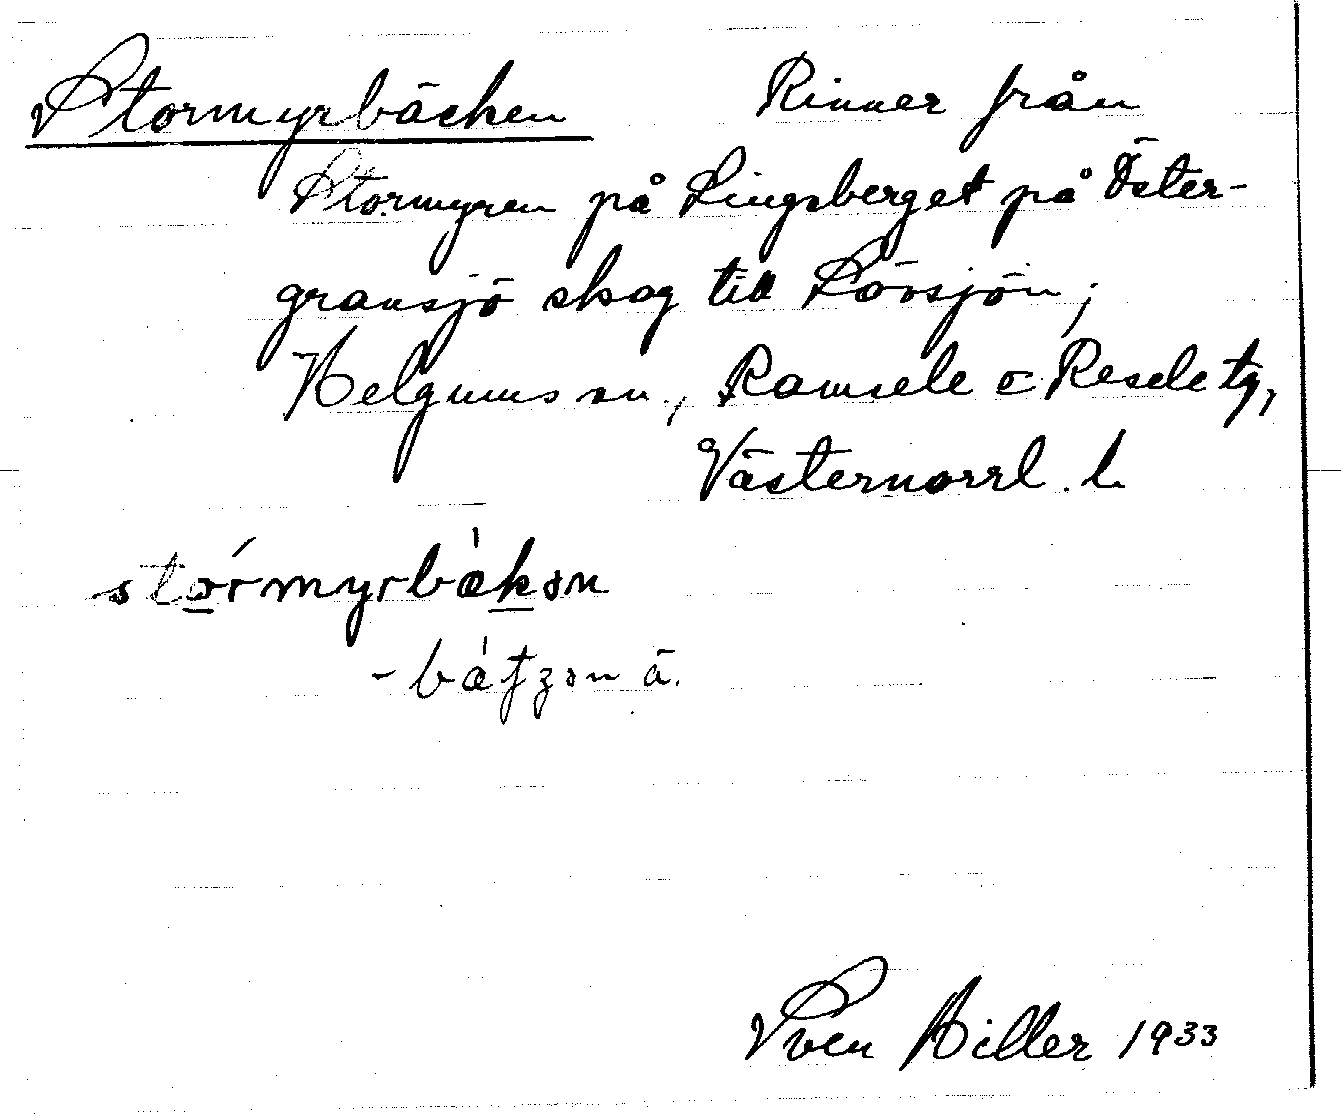 Stormyrbäcken Rinner från
Stormyren på Lingsberget på Öster-
gransjö skog till Lövsjön;
Helgums sn, Ramsele o Resele tg,
Västernorrl. l.
stormyrbäkən
ä.
Sven Hiller 1933